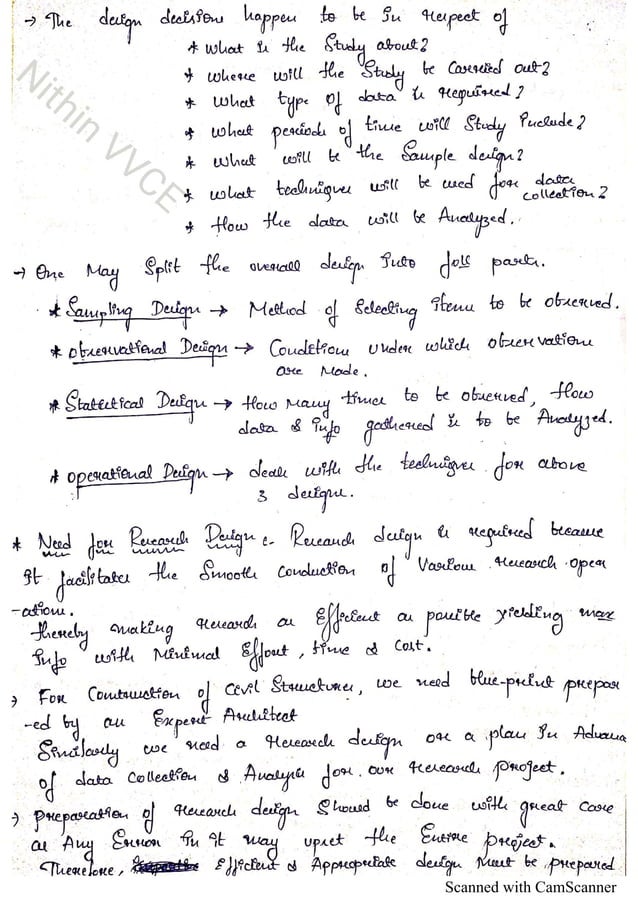 → The design decisions happen to be in respect of
* What is the Study about?
* where will the Study be Carried out?
* what type of data is required?
* what periods of time will Study Include?
* what will be the Sample design?
* what techniques will be used for data collection?
* How the data will be Analyzed.
Nithin VVCE
→ One May Split the overall design Into foll parts.
* Sampling Design → Method of Selecting items to be observed.
* observational Design → Conditions under which observations
are Made.
* Statistical Design → How Many times to be observed, How
data & info gathered is to be Analyzed.
* operational Design → deals with the techniques for above
3 designs.
* Need for Research Design :- Research design is required because
It facilitates the Smooth Conduction of Various research oper
-ations.
thereby making research as Efficient as possible yielding max
Info with Minimal Effort, time & Cost.
→ For Construction of Civil Structures, we need blue-print prepar
-ed by an Expert Architect
Similarly we need a research design or a plan In Advance
of data Collection & Analysis for our research project.
→ preparation of research design Should be done with great Care
as Any Error In it may upset the Entire project.
Therefore, Efficient & Appropriate design Must be prepared
Scanned with CamScanner